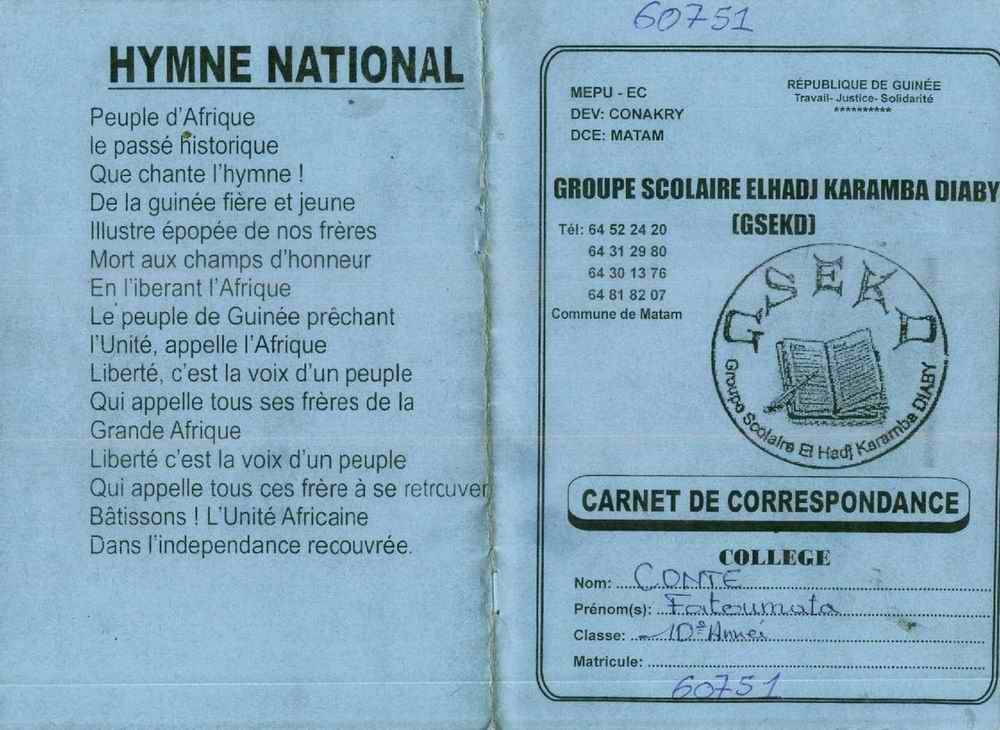 HYMNE NATIONAL
Peuple d'Afrique
le passé historique
Que chante l'hymne !
De la guinée fière et jeune
Illustre épopée de nos frères
Mort aux champs d'honneur
En l'iberant l'Afrique
Le peuple de Guinée prêchant
l'Unité, appelle l'Afrique
Liberté, c'est la voix d'un peuple
Qui appelle tous ses frères de la
Grande Afrique
Liberté c'est la voix d'un peuple
Qui appelle tous ces frère à se retrouver
Bâtissons ! L'Unité Africaine
Dans l'independance recouvrée.
60751
MEPU - EC
DEV: CONAKRY
DCE: MATAM
RÉPUBLIQUE DE GUINÉE
Travail- Justice- Solidarité
**********
GROUPE SCOLAIRE ELHADJ KARAMBA DIABY
(GSEKD)
Tél: 64 52 24 20
64 31 29 80
64 30 13 76
64 81 82 07
Commune de Matam
GSEKD
Groupe Scolaire El Hadj Karamba DIABY
CARNET DE CORRESPONDANCE
COLLEGE
Nom: CONTE
Prénom(s): Fatoumata
Classe: 10e Année
Matricule:
60751